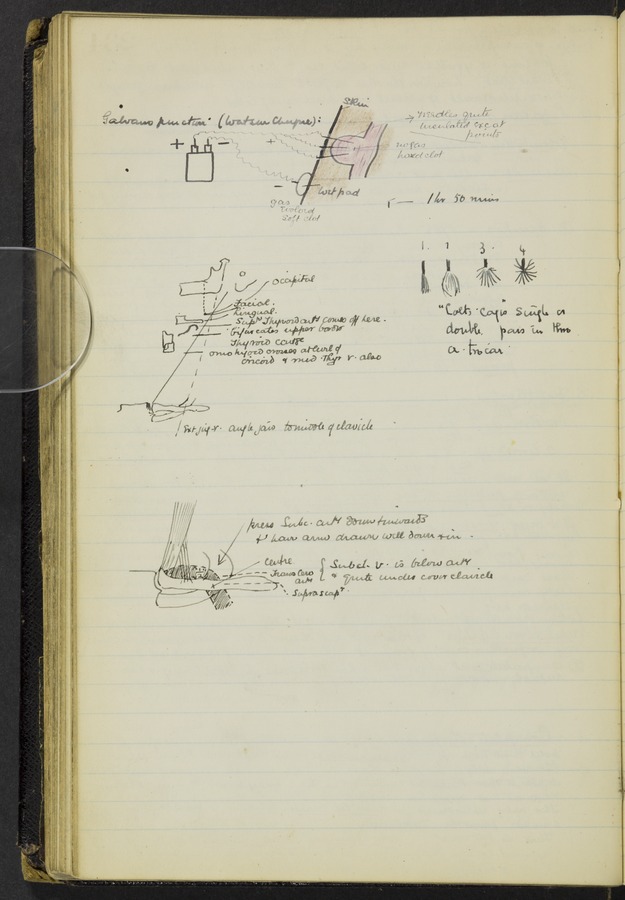 Galvano puncture (Watson Cheyne):
Skin
→ needles quite
insulated except at
points
+ −
+
no gas
hard clot
−
wet pad
gas
evolved
soft clot
1 hr. 50 mins
1. 1 3. 4
"Colt's Cage" single or
double pass in thro
a trocar
occipital
Facial.
Lingual.
Supr Thyroid arty comes off here.
bifurcates upper bord
Thyroid cartge
omohyoid crosses at level of
cricoid & mid Thyr v. also
Ext jug v. angle jaw to middle of clavicle
press Subc. arty down & inwards
& have arm drawn well down & in.
centre
Trans Cerv
arty
Suprascapr
{ Subcl. v. is below arty
& quite under cover clavicle